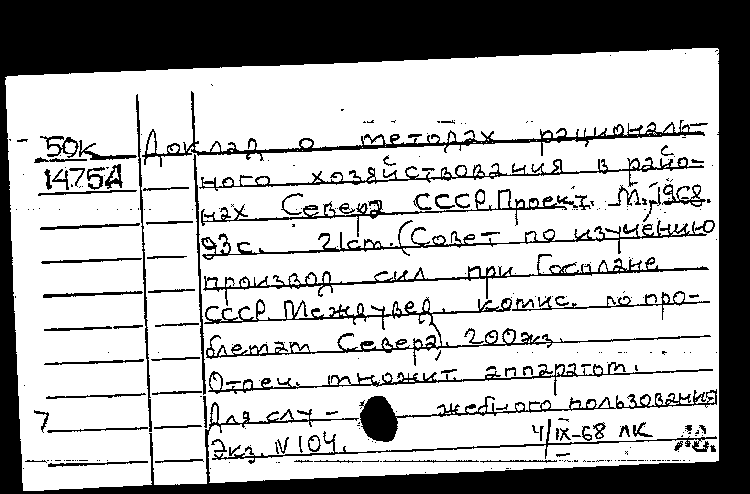 50к Доклад о методах рациональ-
1475А ного хозяйствования в райо-
нах Севера СССР. Проект. М., 1968.
93с. 21ст. (Совет по изучению
производ. сил при Госплане
СССР. Междувед. комис. по про-
блемам Севера). 200экз.
Отпеч. множит. аппаратом.
7 Для слу- жебного пользования
Экз. N 104. 4/IX-68 ЛК